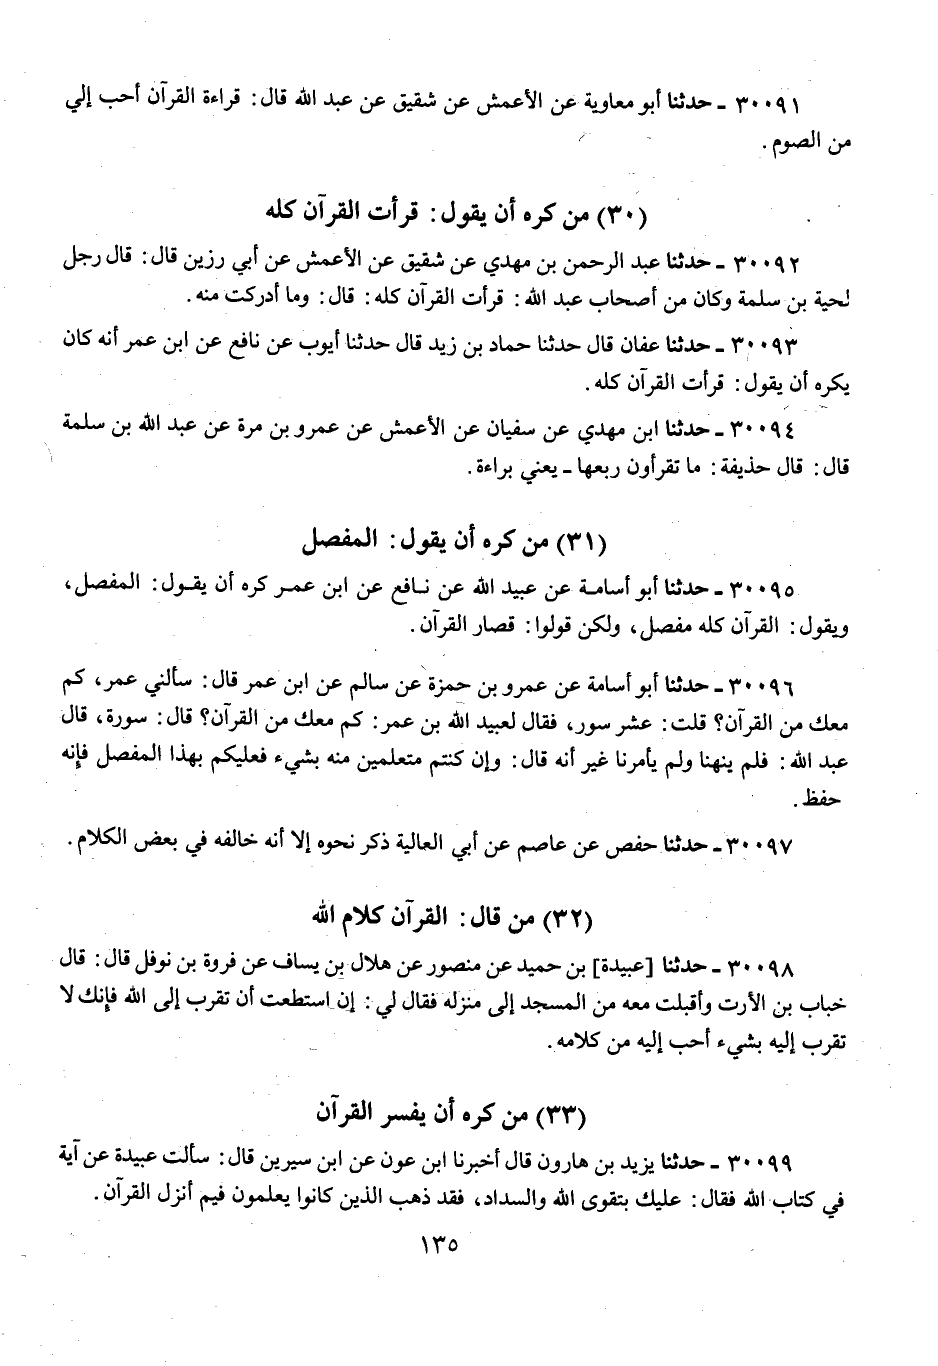 ٣٠٠٩١ ـ حدثنا أبو معاوية عن الأعمش عن شقيق عن عبد الله قال: قراءة القرآن أحب إلي
من الصوم.
(٣٠) من كره أن يقول: قرأت القرآن كله
٣٠٠٩٢ ـ حدثنا عبد الرحمن بن مهدي عن شقيق عن الأعمش عن أبي رزين قال: قال رجل
لحية بن سلمة وكان من أصحاب عبد الله: قرأت القرآن كله: قال: وما أدركت منه.
٣٠٠٩٣ ـ حدثنا عفان قال حدثنا حماد بن زيد قال حدثنا أيوب عن نافع عن ابن عمر أنه كان
يكره أن يقول: قرأت القرآن كله.
٣٠٠٩٤ ـ حدثنا ابن مهدي عن سفيان عن الأعمش عن عمرو بن مرة عن عبد الله بن سلمة
قال: قال حذيفة: ما تقرأون ربعها ـ يعني براءة.
(٣١) من كره أن يقول: المفصل
٣٠٠٩٥ ـ حدثنا أبو أسامة عن عبيد الله عن نافع عن ابن عمر كره أن يقول: المفصل،
ويقول: القرآن كله مفصل، ولكن قولوا: قصار القرآن.
٣٠٠٩٦ ـ حدثنا أبو أسامة عن عمرو بن حمزة عن سالم عن ابن عمر قال: سألني عمر، كم
معك من القرآن؟ قلت: عشر سور، فقال لعبيد الله بن عمر: كم معك من القرآن؟ قال: سورة، قال
عبد الله: فلم ينهنا ولم يأمرنا غير أنه قال: وإن كنتم متعلمين منه بشيء فعليكم بهذا المفصل فإنه
حفظ.
٣٠٠٩٧ ـ حدثنا حفص عن عاصم عن أبي العالية ذكر نحوه إلا أنه خالفه في بعض الكلام.
(٣٢) من قال: القرآن كلام الله
٣٠٠٩٨ ـ حدثنا [عبيدة] بن حميد عن منصور عن هلال بن يساف عن فروة بن نوفل قال: قال
خباب بن الأرت وأقبلت معه من المسجد إلى منزله فقال لي: إن استطعت أن تقرب إلى الله فإنك لا
تقرب إليه بشيء أحب إليه من كلامه.
(٣٣) من كره أن يفسر القرآن
٣٠٠٩٩ ـ حدثنا يزيد بن هارون قال أخبرنا ابن عون عن ابن سيرين قال: سألت عبيدة عن آية
في كتاب الله فقال: عليك بتقوى الله والسداد، فقد ذهب الذين كانوا يعلمون فيم أنزل القرآن.
١٣٥